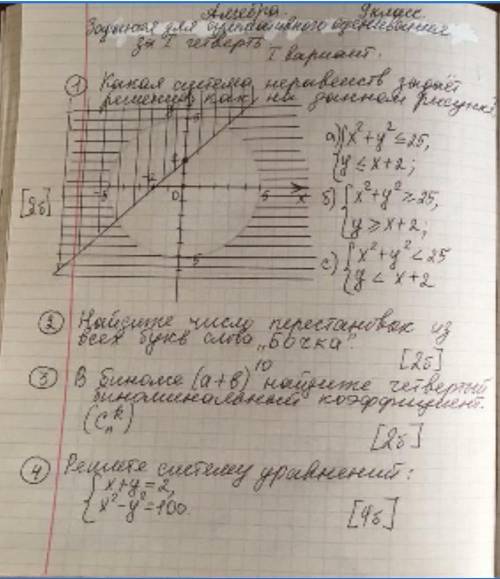 Алгебра. 9 класс.
Задания для суммативного оценивания
за I четверть
I вариант.
① Какая система неравенств задаёт
решения, как на данном рисунке
[2б]
5
2
-5
-2
0
5
x
5
а) { x²+y² ≤ 25,
y ≤ x+2;
б) { x²+y² ≥ 25,
y ≥ x+2;
с) { x²+y² < 25
y < x+2
② Найдите число перестановок из
всех букв слова „Бочка".
[2б]
③ В биноме (a+b)¹⁰ найдите четвертый
биноминальный коэффициент.
(Cₙᵏ)
[2б]
④ Решите систему уравнений:
{ x+y=2,
x²-y²=100.
[4б]